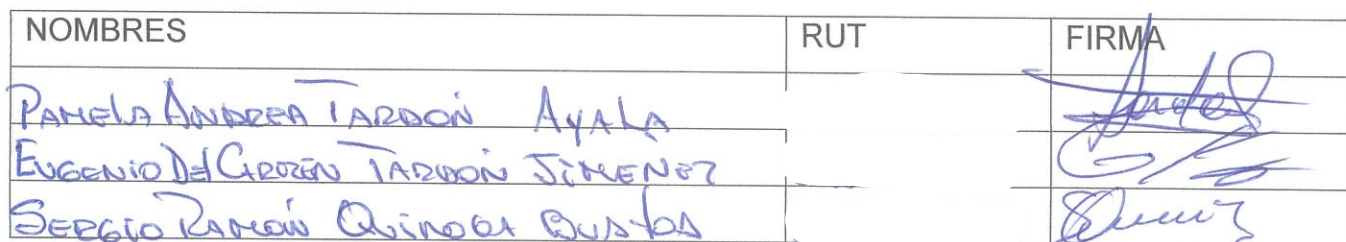 NOMBRES RUT FIRMA
PAMELA ANDREA TARDÓN AYALA
EUGENIO DEL CARMEN TARDÓN JIMENEZ
SERGIO RAMÓN QUIROGA BUSTOS